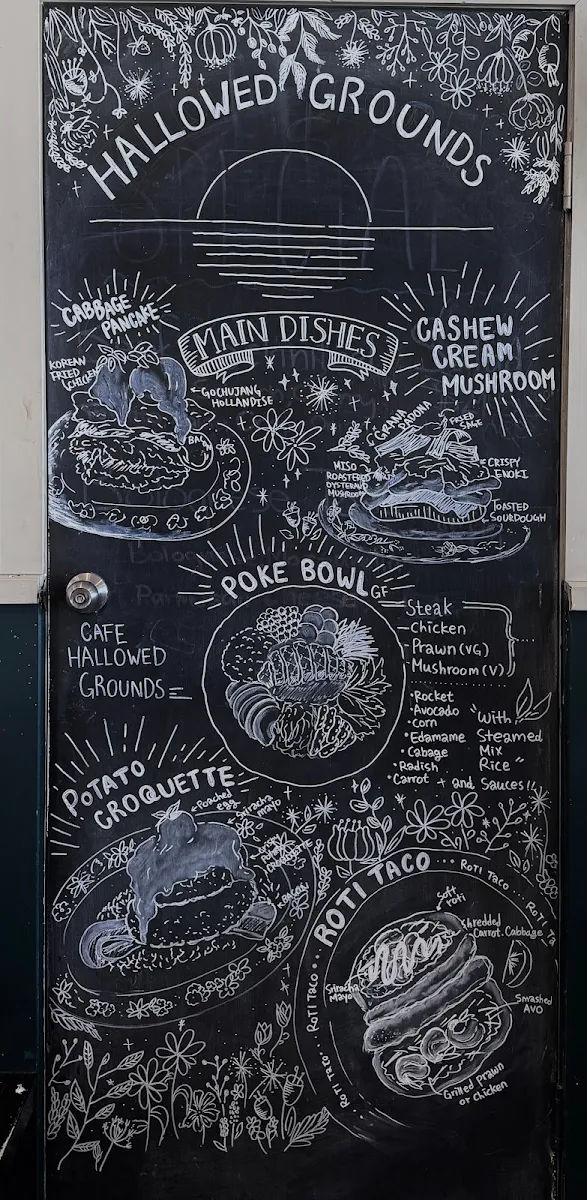 HALLOWED GROUNDS
MAIN DISHES
CABBAGE
PANCAKE
KOREAN
FRIED
CHICKEN
GOCHUJANG
HOLLANDISE
CASHEW
CREAM
MUSHROOM
GRANA
PADONA
FRIED
SAGE
MISO
ROASTERED
OYSTER
MUSHROOM
CRISPY
ENOKI
TOASTED
SOURDOUGH
POKE BOWL GF
Steak
Chicken
Prawn (VG)
Mushroom (V)
•Rocket
•Avocado
•corn
•Edamame
•Cabage
•Radish
•Carrot
"With
Steamed
Mix
Rice"
+ and Sauces!!
CAFE
HALLOWED
GROUNDS
POTATO
CROQUETTE
Poached
egg
Sriracha
mayo
BACON
ROTI TACO ... Roti Taco ... Roti Ta
Roti Taco ... Roti Taco ...
Soft
roti
Shredded
Carrot.Cabbage
Sriracha
Mayo
Smashed
AVO
Grilled Prawn
or Chicken